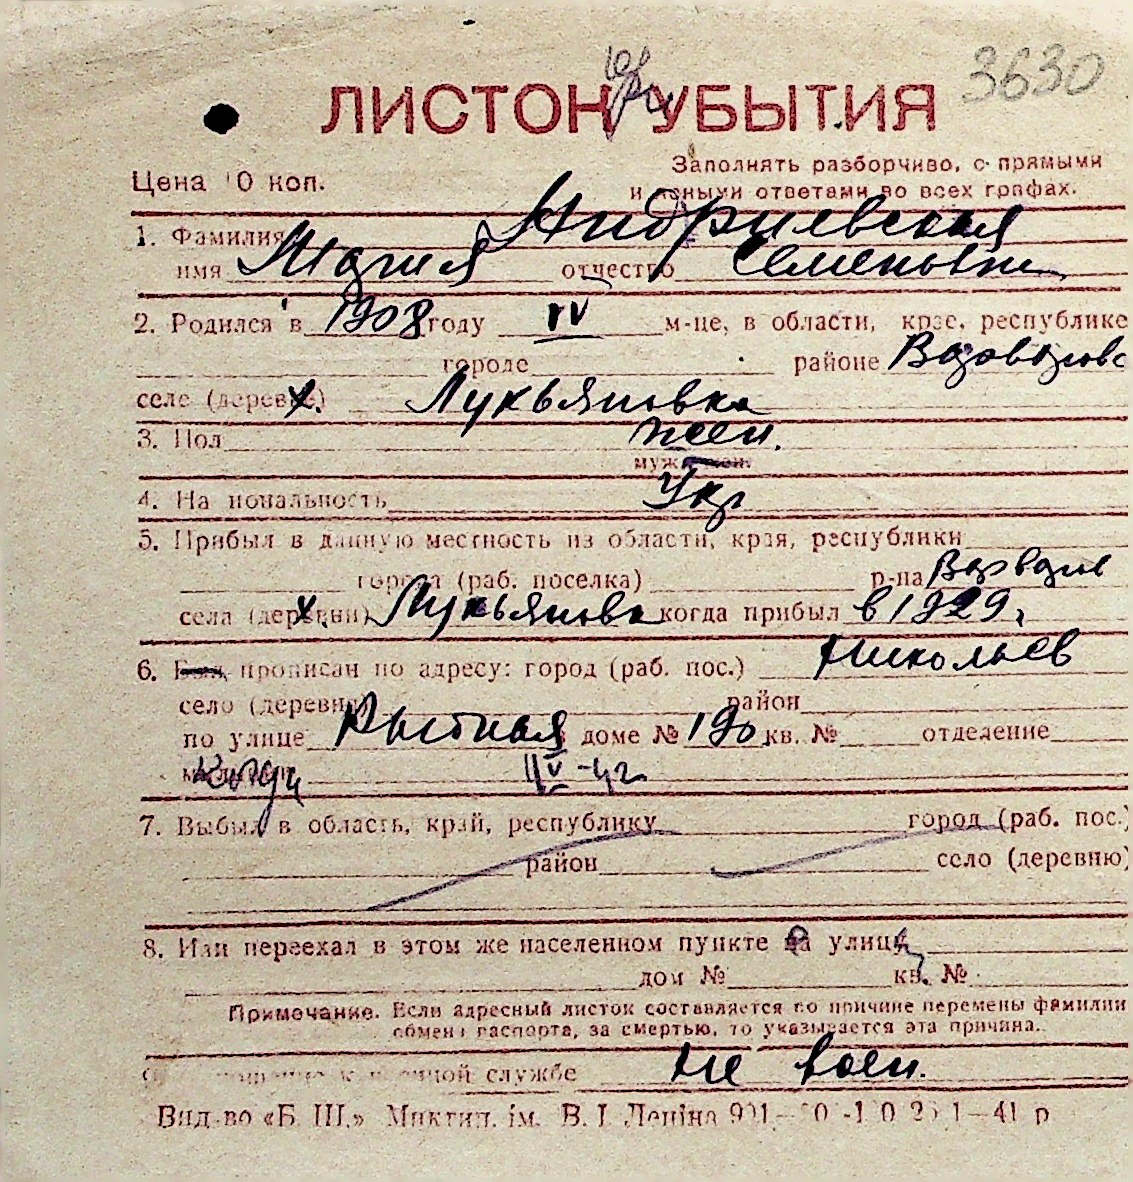 3630
ЛИСТОК УБЫТИЯ
Заполнять разборчиво, с прямыми
Цена 10 коп.
и ясными ответами во всех графах.
1. Фамилия Андриевская
имя Мария отчество Семеновна
2. Родился в 1908 году IV м-це, в области, крае, республике
городе районе
селе (деревне) х. Лукьяновка
3. Пол жен.
муж. жен.
4. Национальность Укр
5. Прибыл в данную местность из области, края, республики
города (раб. поселка) р-на
села (деревни) х Лукьяновка когда прибыл в 1929 г
6. Был прописан по адресу: город (раб. пос.) Николаев
село (деревня) район
по улице доме № 190 кв. № отделение
милиции когда
7. Выбыл в область, край, республику город (раб. пос.)
район село (деревню)
8. Или переехал в этом же населенном пункте на улицу
дом № кв. №
Примечание. Если адресный листок составляется по причине перемены фамилии
обмена паспорта, за смертью, то указывается эта причина.
службе не воен.
Вид-во «Б. Ш.» Микт ип. ім. В. І. Леніна